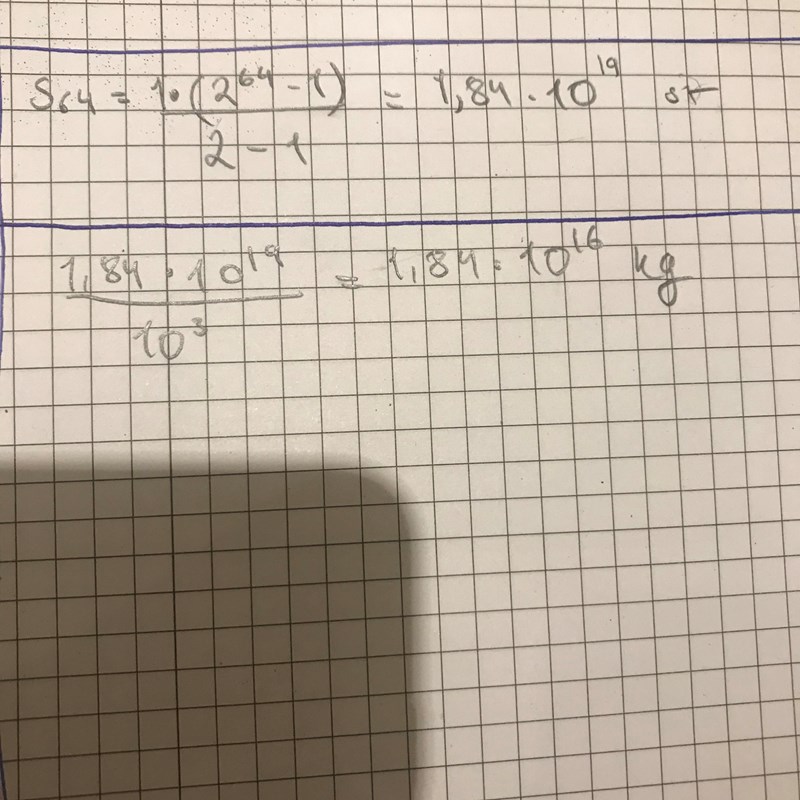 S₆₄ = 1·(2⁶⁴ - 1) / 2 - 1 = 1,84 · 10¹⁹ st
1,84 · 10¹⁹ / 10³ = 1,84 · 10¹⁶ kg